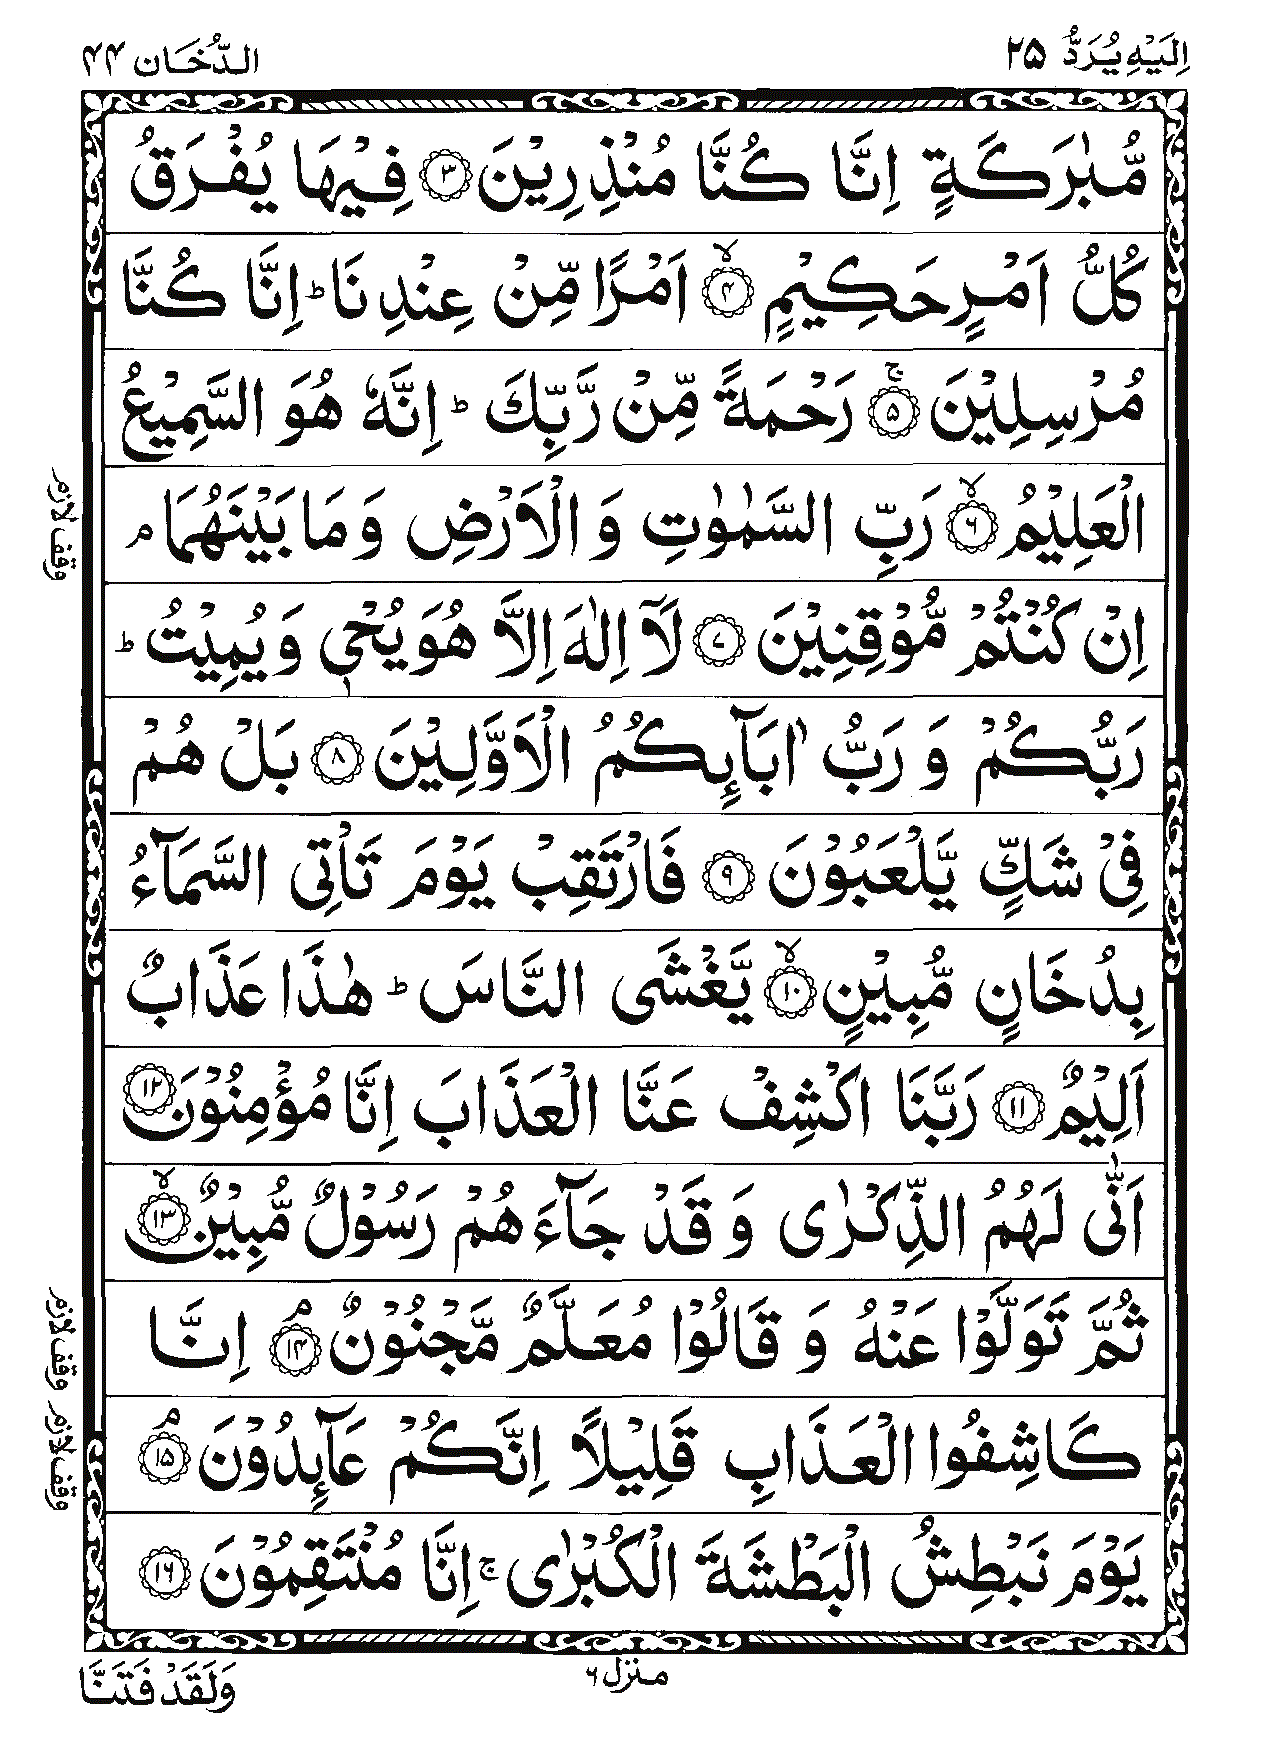 اِلَيْهِ يُرَدُّ ٢٥
الدُّخَان ٤٤
مُّبٰرَكَةٍ اِنَّا كُنَّا مُنْذِرِيْنَ ٣ فِيْهَا يُفْرَقُ
كُلُّ اَمْرٍ حَكِيْمٍ ۙ ٤ اَمْرًا مِّنْ عِنْدِنَا ؕ اِنَّا كُنَّا
مُرْسِلِيْنَ ۚ ٥ رَحْمَةً مِّنْ رَّبِّكَ ؕ اِنَّهٗ هُوَ السَّمِيْعُ
الْعَلِيْمُ ۙ ٦ رَبِّ السَّمٰوٰتِ وَ الْاَرْضِ وَ مَا بَيْنَهُمَا ۘ
وقف لازم
اِنْ كُنْتُمْ مُّوْقِنِيْنَ ٧ لَاۤ اِلٰهَ اِلَّا هُوَ يُحْيٖ وَ يُمِيْتُ ؕ
رَبُّكُمْ وَ رَبُّ اٰبَآىِٕكُمُ الْاَوَّلِيْنَ ٨ بَلْ هُمْ
فِيْ شَكٍّ يَّلْعَبُوْنَ ٩ فَارْتَقِبْ يَوْمَ تَاْتِي السَّمَآءُ
بِدُخَانٍ مُّبِيْنٍ ۙ ١٠ يَّغْشَى النَّاسَ ؕ هٰذَا عَذَابٌ
اَلِيْمٌ ١١ رَبَّنَا اكْشِفْ عَنَّا الْعَذَابَ اِنَّا مُؤْمِنُوْنَ ١٢
اَنّٰى لَهُمُ الذِّكْرٰى وَ قَدْ جَآءَهُمْ رَسُوْلٌ مُّبِيْنٌ ۙ ١٣
ثُمَّ تَوَلَّوْا عَنْهُ وَ قَالُوْا مُعَلَّمٌ مَّجْنُوْنٌ ۘ ١٤ اِنَّا
وقف لازم
كَاشِفُوا الْعَذَابِ قَلِيْلًا اِنَّكُمْ عَآىِٕدُوْنَ ۘ ١٥
وقف لازم
يَوْمَ نَبْطِشُ الْبَطْشَةَ الْكُبْرٰى ۚ اِنَّا مُنْتَقِمُوْنَ ١٦
منزل ٦
وَلَقَدْ فَتَنَّا